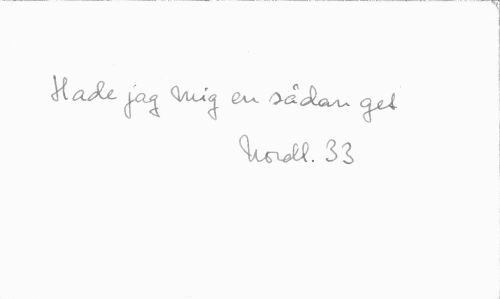 Hade jag mig en sådan get
Nordl. 33